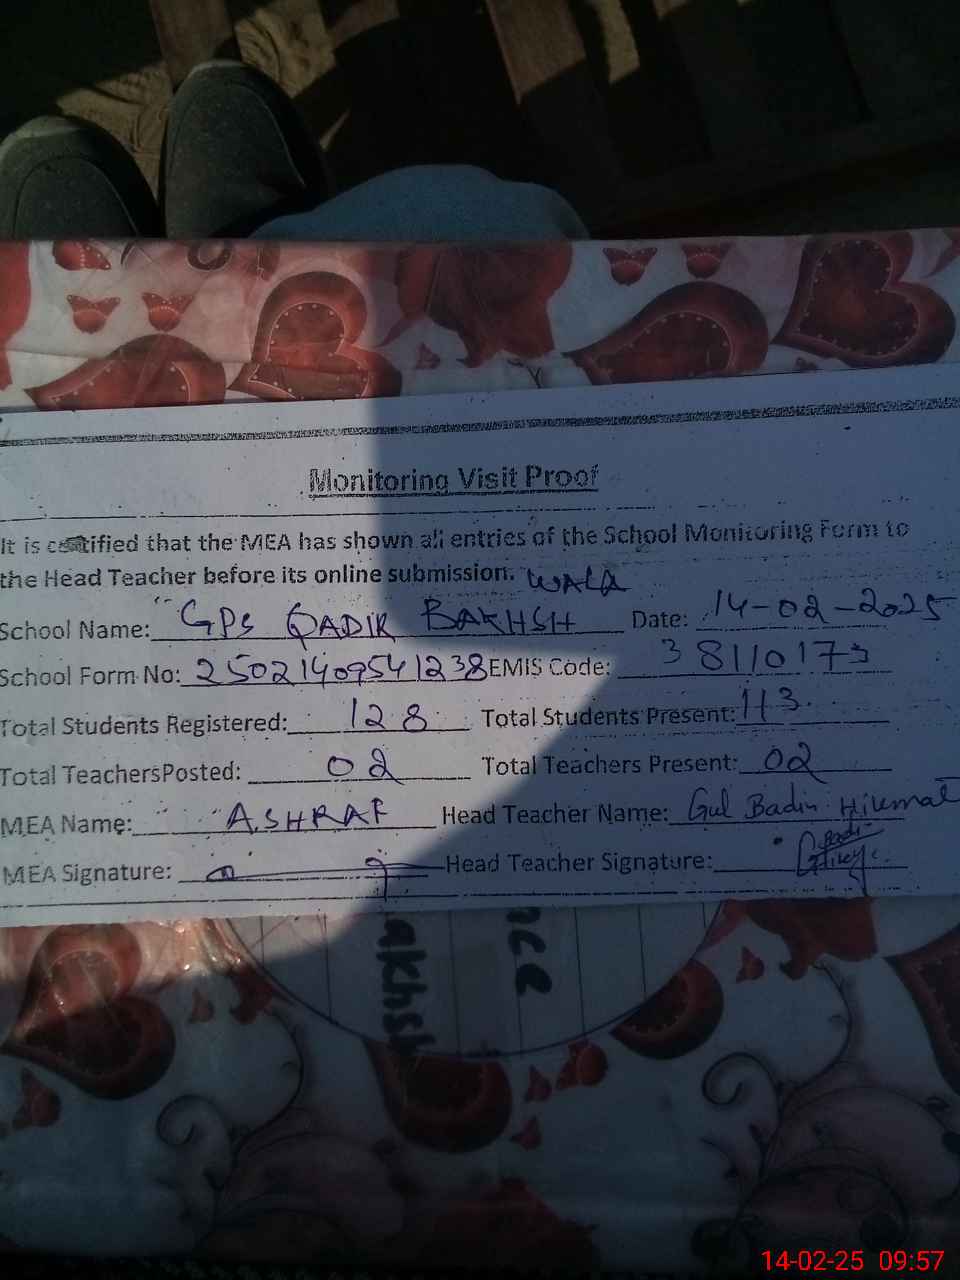 Monitoring Visit Proof
It is certified that the MEA has shown all entries of the School Monitoring Form to
the Head Teacher before its online submission. WALA
School Name: GPS QADIR BAKHSH Date: 14-02-2025
School Form No: 25021409541238 EMIS Code: 38110173
Total Students Registered: 128 Total Students Present: 113
Total TeachersPosted: 02 Total Teachers Present: 02
MEA Name: ASHRAF Head Teacher Name: Gul Badin Hikmat
MEA Signature: Head Teacher Signature:
akhsh
nce
14-02-25 09:57